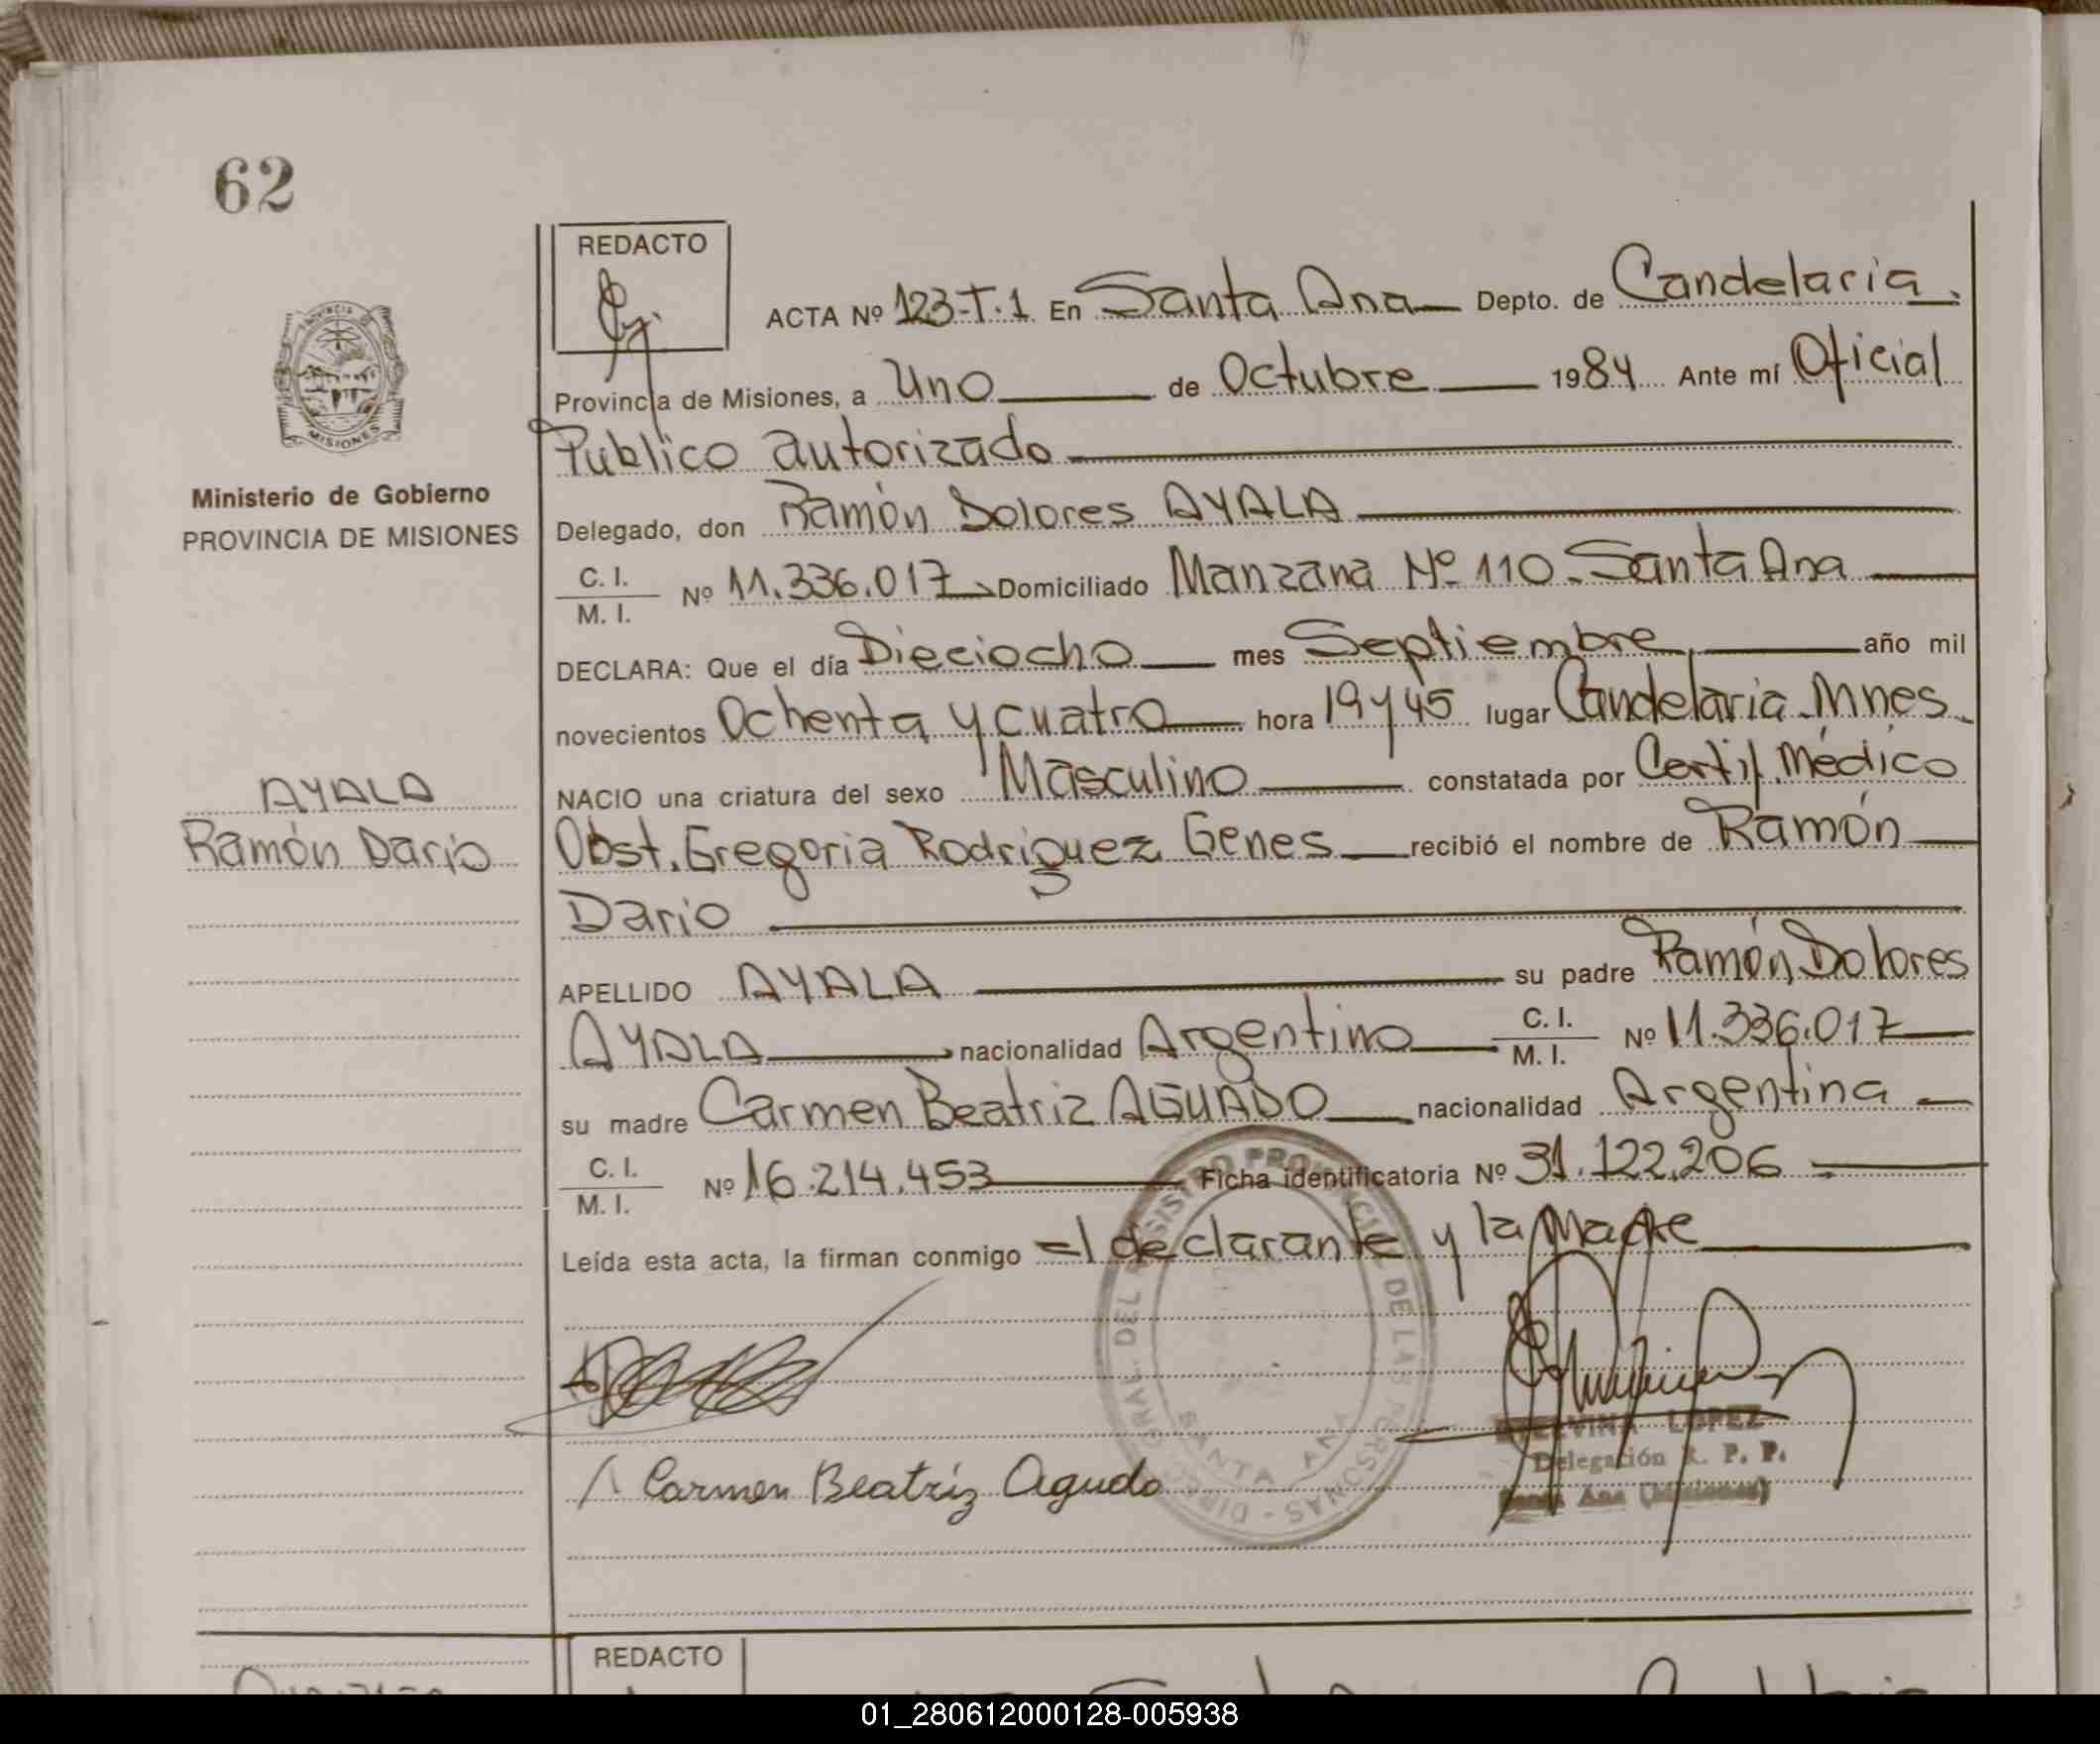 62
REDACTO
ACTA Nº 123-T.1 En Santa Ana Depto. de Candelaria.
Provincia de Misiones, a Uno de Octubre 1984 Ante mí Oficial
Público autorizado
Ministerio de Gobierno
PROVINCIA DE MISIONES
Delegado, don Ramón Dolores AYALA
C. I.
M. I. Nº 11.336.017 Domiciliado Manzana Nº 110-Santa Ana
DECLARA: Que el día Dieciocho mes Septiembre año mil
novecientos Ochenta y cuatro hora 19 y 45 lugar Candelaria.Mnes.
NACIO una criatura del sexo Masculino constatada por Certif. Médico
AYALA
Ramón Dario
Obst. Gregoria Rodriguez Genes recibió el nombre de Ramón
Dario
APELLIDO AYALA su padre Ramón Dolores
AYALA nacionalidad Argentino C. I.
M. I. Nº 11.336.017
su madre Carmen Beatriz AGUADO nacionalidad Argentina
C. I.
M. I. Nº 16.214.453 Ficha identificatoria Nº 31.122.206
Leída esta acta, la firman conmigo el declarante y la Madre
Carmen Beatriz Agudo
LOPEZ
Delegación R. P. P.
Santa Ana (Misiones)
SANTA ANA
REDACTO
01_280612000128-005938